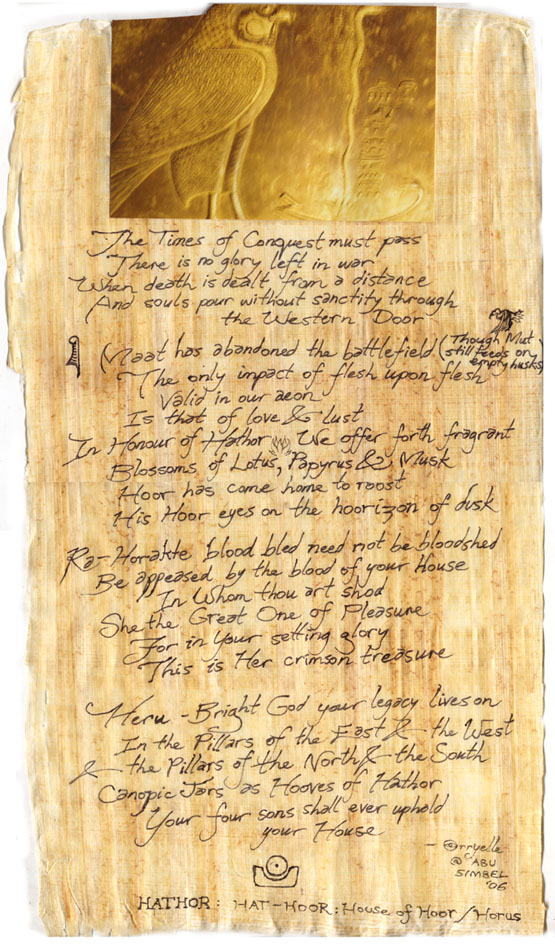 The Times of Conquest must pass
There is no glory left in war
When death is dealt from a distance
And souls pour without sanctity through
the Western Door
Maat has abandoned the battlefield (Though Mut
still feeds on
empty husks)
The only impact of flesh upon flesh
Valid in our aeon
Is that of love & lust
In Honour of Hathor We offer forth fragrant
Blossoms of Lotus, Papyrus & Musk
Hoor has come home to roost
His Hoor eyes on the hoorizon of dusk
Ra-Horakte blood bled need not be bloodshed
Be appeased by the blood of your House
In Whom thou art shod
She the Great One of Pleasure
For in Your setting glory
This is Her crimson treasure
Heru - Bright God your legacy lives on
In the Pillars of the East & the West
& the Pillars of the North & the South
Canopic Jars as Hooves of Hathor
Your four sons shall ever uphold
your House
- Orryelle
@ ABU
SIMBEL
'06
HATHOR: HAT-HOOR: House of Hoor/Horus